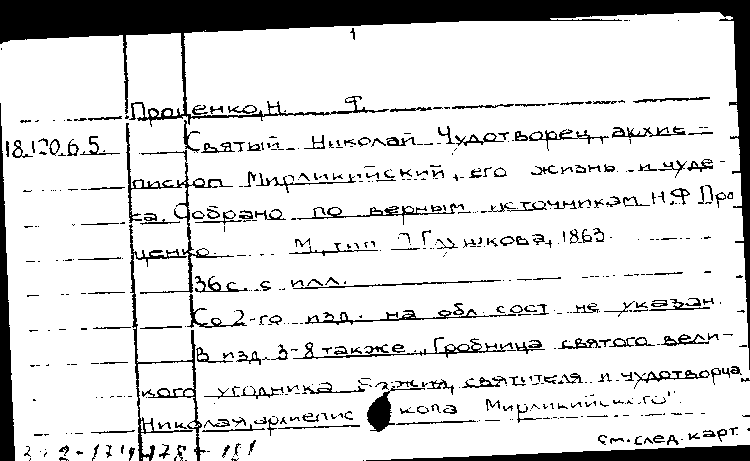 1
Проценко, Н. Ф.
18.120.6.5. Святый Николай Чудотворец, архие-
пископ Мирликийский, его жизнь и чуде-
са. Собрано по верным источникам Н.Ф Про
ценко. М, тип Глушкова, 1863.
36 с. с илл.
Со 2-го изд. на обл. сост не указан.
В изд. 3-8 также „Гробница святого вели-
кого угодника Божия, святителя и чудотворца
Николая, архиепископа Мирликийского"
см. след. карт.